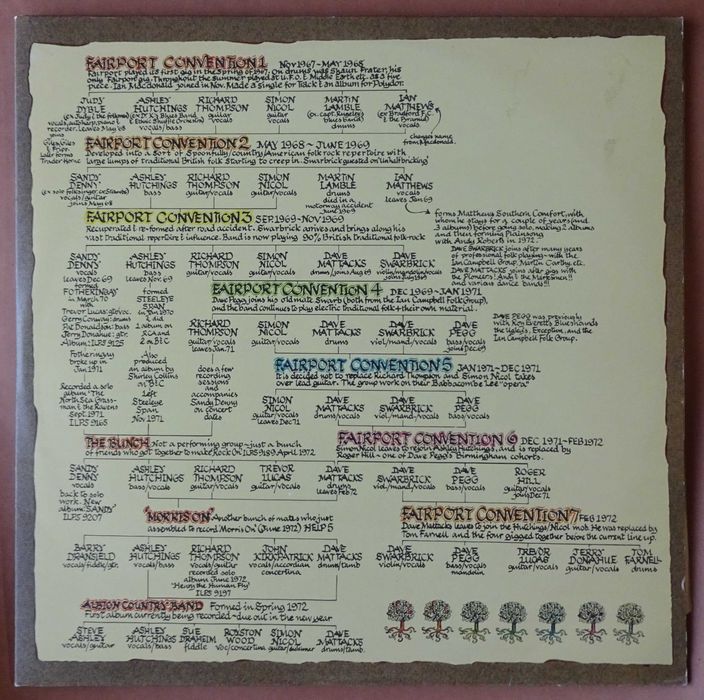 FAIRPORT CONVENTION 1 NOV 1967 – MAY 1968
Fairport played its first gig in the spring of 1967. On drums was Shaun Frater, his
only Fairport gig. Throughout the summer played at U.F.O. & Middle Earth etc. as a five
piece. Ian Macdonald joined in Nov. Made a single for Track & an album for Polydor.
JUDY DYBLE
(ex Judy & the folkmen)
vocals, autoharp, piano &
recorder, leaves May 68
joins
Giles Giles
& Fripp.
Later forms
Trader Horne
ASHLEY HUTCHINGS
vocals/bass
RICHARD THOMPSON
guitar
vocals
SIMON NICOL
guitar
vocals
MARTIN LAMBLE
drums
IAN MATTHEWS
(ex Bradford F.C.
& the Pyramid)
vocals
changes name
from Macdonald.
FAIRPORT CONVENTION 2 MAY 1968 – JUNE 1969
Developed into a sort of Spoonfully/country/American folk rock repertoire with
large lumps of traditional British folk starting to creep in. Swarbrick guested on 'Unhalfbricking'
SANDY DENNY
(ex solo folksinger, ex Strawbs)
vocals/guitar
joins May 68
ASHLEY HUTCHINGS
bass
RICHARD THOMPSON
guitar/vocals
SIMON NICOL
guitar/vocals
MARTIN LAMBLE
drums
died in a
motorway accident
June 1969
IAN MATTHEWS
vocals
leaves Jan 69
forms Matthews Southern Comfort, with
whom he stays for a couple of years (and
3 albums) before going solo, making 2 albums
and then forming Plainsong
with Andy Roberts in 1972.
FAIRPORT CONVENTION 3 SEP. 1969 – NOV 1969
Recuperated & re-formed after road accident. Swarbrick arrives and brings along his
vast traditional repertoire & influence. Band is now playing 90% British traditional folk-rock
DAVE SWARBRICK joins after many years
of professional folk playing – with the
Ian Campbell Group, Martin Carthy, etc.
DAVE MATTACKS joins after gigs with
the Pioneers!, Andy & the Marksmen!!
and various dance bands!!!
SANDY DENNY
vocals
leaves Dec 69
formed
FOTHERINGAY
in March 70
with
Trevor Lucas: g/voc.
Gerry Conway: drums
Pat Donaldson: bass
Jerry Donahue: gtr.
Album: ILPS 9125
Fotheringay
broke up in
Jan 1971
Recorded a solo
album 'The
North Star Grass-
man & the Ravens'
Sept. 1971
ILPS 9165
ASHLEY HUTCHINGS
bass
leaves Nov. 69
formed
STEELEYE
SPAN
in Jan 1970
& did
1 album on
RCA and
2 on B&C
Also
produced
an album by
Shirley Collins
on B&C
Left
Steeleye
Span
Nov 1971
RICHARD THOMPSON
guitar/vocals
SIMON NICOL
guitar/vocals
DAVE MATTACKS
drums/joins Aug 69
DAVE SWARBRICK
violin/mandolin/vocals
joins July 69
FAIRPORT CONVENTION 4 DEC 1969 – JAN 1971
Dave Pegg joins his old mate Swarb (both from the Ian Campbell Folk Group),
and the band continues to play electric traditional folk + their own material.
DAVE PEGG was previously
with Roy Everett's Blueshounds
the Uglys, Exception, and the
Ian Campbell Folk Group.
RICHARD THOMPSON
guitar/vocals
leaves Jan. 71
does a few
recording
sessions
and
accompanies
Sandy Denny
on concert
dates
SIMON NICOL
guitar/vocals
DAVE MATTACKS
drums
DAVE SWARBRICK
viol/mand/vocals
DAVE PEGG
bass/vocals
joins Dec 69
FAIRPORT CONVENTION 5 JAN 1971 – DEC 1971
It is decided not to replace Richard Thompson and Simon Nicol takes
over lead guitar. The group work on their Babbacombe Lee "opera"
SIMON NICOL
guitar/vocals
leaves Dec 71
DAVE MATTACKS
drums/vocals
DAVE SWARBRICK
viol./mand/vocals
DAVE PEGG
bass/vocals
THE BUNCH Not a performing group – just a bunch
of friends who got together to make 'Rock On' ILPS 9189 April 1972
FAIRPORT CONVENTION 6 DEC 1971 – FEB 1972
Simon Nicol leaves to rejoin Ashley Hutchings, and is replaced by
Roger Hill – one of Dave Pegg's Birmingham cohorts.
SANDY DENNY
vocals
back to solo
work. New
album 'SANDY'
ILPS 9207
ASHLEY HUTCHINGS
bass/vocals
RICHARD THOMPSON
guitar/vocals
TREVOR LUCAS
guitar/vocals
DAVE MATTACKS
drums
leaves Feb 72
DAVE SWARBRICK
viol/mand/vocals
DAVE PEGG
bass/vocals
ROGER HILL
guitar/vocals
joins Dec 71
'MORRIS ON' Another bunch of mates who just
assembled to record 'Morris On' (June 1972) HELP 5
FAIRPORT CONVENTION 7 FEB 1972
Dave Mattacks leaves to join the Hutchings/Nicol mob. He was replaced by
Tom Farnell and the four gigged together before the current line up.
BARRY DRANSFIELD
vocals/fiddle/gtr.
ASHLEY HUTCHINGS
bass/vocals
RICHARD THOMPSON
vocals/guitar
recorded solo
album June 1972
'Henry the Human Fly'
ILPS 9197
JOHN KIRKPATRICK
vocals/accordian
concertina
DAVE MATTACKS
drums/tamb.
DAVE SWARBRICK
violin/vocals
DAVE PEGG
bass/vocals
mandolin
TREVOR LUCAS
guitar/vocals
JERRY DONAHUE
guitar/vocals
TOM FARNELL
drums
ALBION COUNTRY BAND Formed in Spring 1972
First album currently being recorded – due out in the new year
STEVE ASHLEY
vocals/guitar
ASHLEY HUTCHINGS
vocals/bass
SUE DRAHEIM
fiddle
ROYSTON WOOD
voc/concertina
SIMON NICOL
guitar/dulcimer
DAVE MATTACKS
drums/tamb.